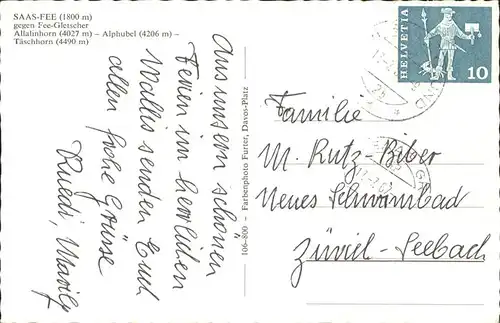 SAAS-FEE (1800 m)
gegen Fee-Gletscher
Allalinhorn (4027 m) – Alphubel (4206 m) –
Täschhorn (4490 m)
Aus unsern schönen
Ferien im herrlichen
Wallis senden Euch
allen frohe Grüsse
Ruedi, Marily
106-800 - Farbenphoto Furter, Davos-Platz
HELVETIA
10
Familie
M. Rutz-Biber
Neues Schwimmbad
Zürich-Seebach